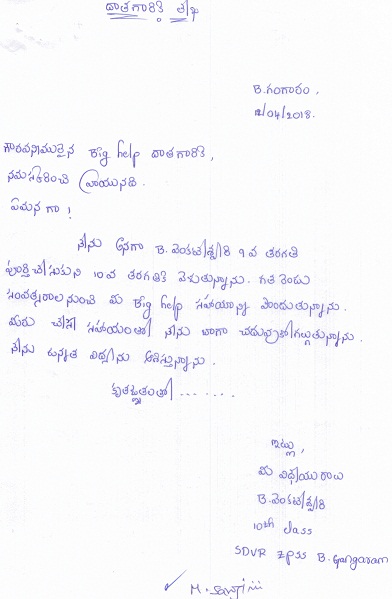 దాతగారికి లేఖ
B. గంగారం,
12/04/2018.
గౌరవనీయులైన Big help దాతగారికి,
నమస్కరించి వ్రాయునది.
ఏమన గా!
నేను అనగా B. వెంకటేశ్వరి 9 వ తరగతి
పూర్తి చేసుకుని 10 వ తరగతికి వెళుతున్నాను. గత రెండు
సంవత్సరాల నుంచి మీ Big help సహాయాన్ని పొందుతున్నాను.
మీరు చేసే సహాయంతో నేను బాగా చదువుకోగల్గుతున్నాను.
నేను ఉన్నత విద్యను ఆశిస్తున్నాను.
కృతజ్ఞతలతో ........
ఇట్లు,
మీ విద్యార్థి రాలు
B. వెంకటేశ్వరి
10th class
SDVR ZPSS B. Gangaram
M.